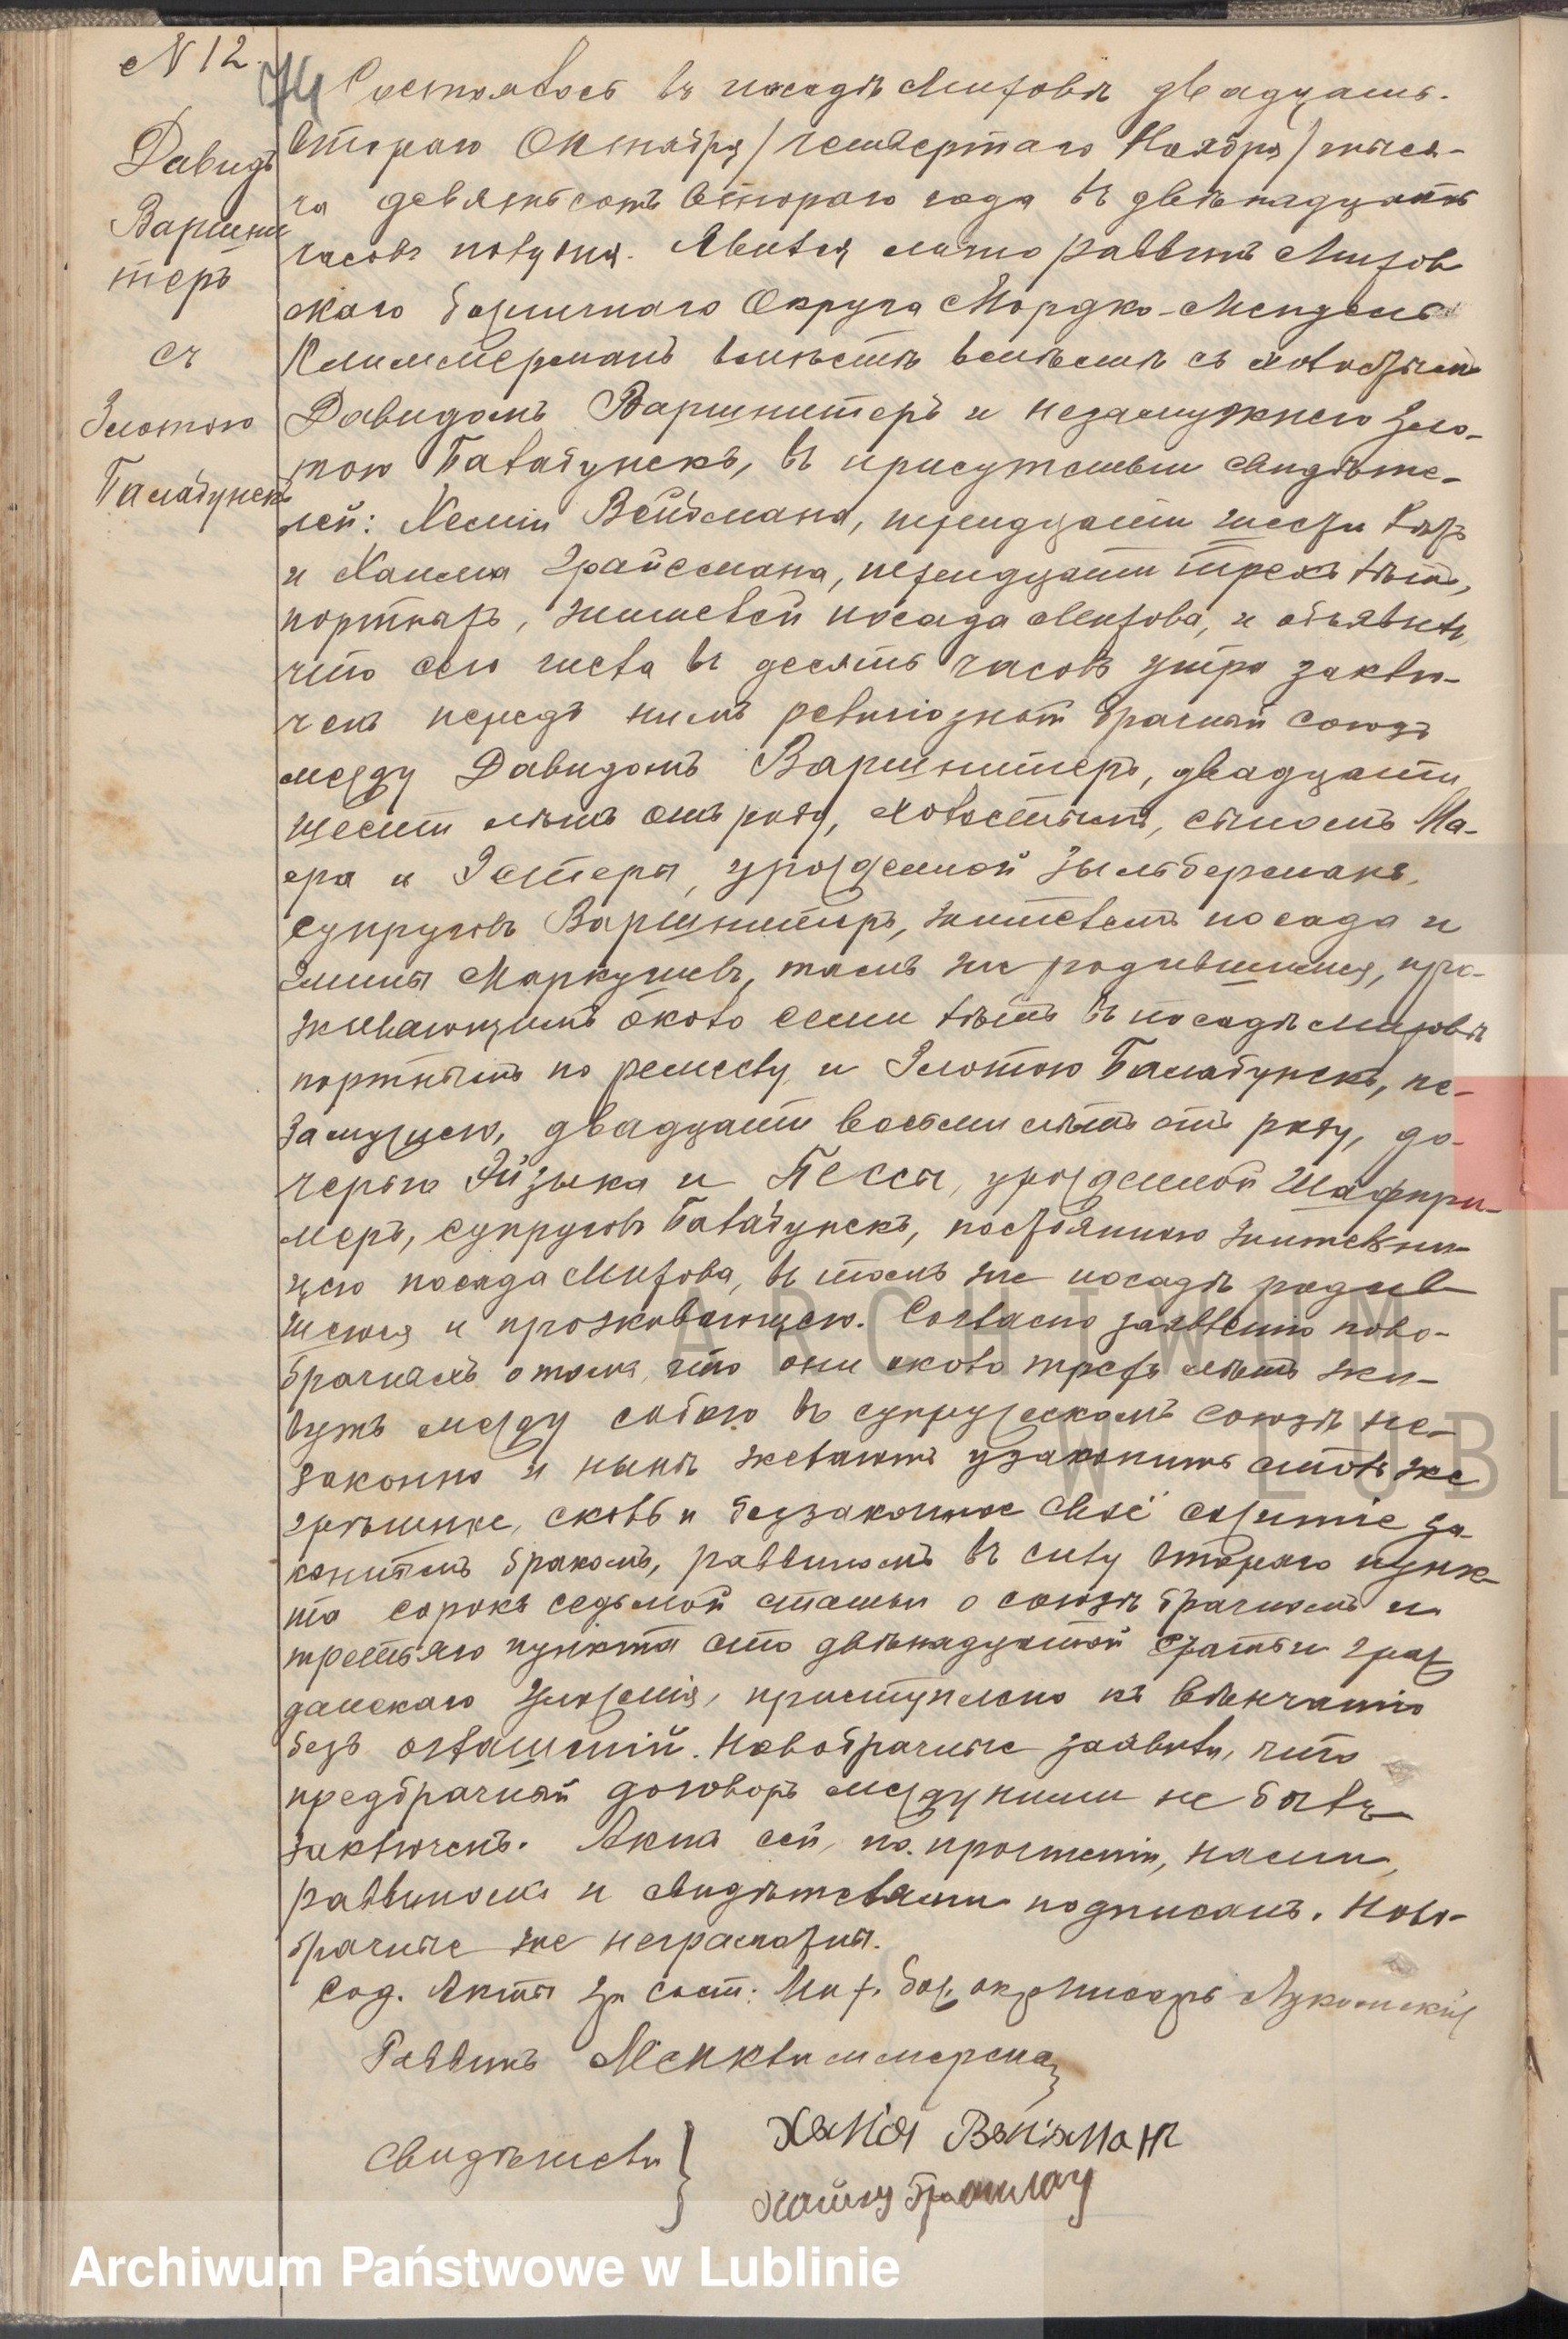 N 12.
Давидъ
Варшни
теръ
съ
Златою
Балабунскъ
Состоялось въ посадѣ Лизовѣ двадцать-
втораго Октября / четвертаго Ноября / тыся-
ча девятьсотъ втораго года въ двѣнадцать
часовъ полудня. Явился лично раввинъ
скаго божничнаго Округа Мордко-Мендель
Климмерманъ вмѣстѣ съ холостымъ
Давидомъ Варшнитеръ и незамужнею Зло-
тою Балабунскъ, въ присутствіи свидѣте-
лей: Хеміи Вейсмана, тридцати шести лѣтъ
и Хаима Грайсмана, тридцати трехъ лѣтъ,
портныхъ, жителей посада и объявилъ,
что сего числа въ десять часовъ утра заклю-
ченъ передъ нимъ религіозный брачный союзъ
между Давидомъ Варшнитеръ, двадцати
шести лѣтъ отъ роду, холостымъ, сыномъ Ма-
ера и Эстеры, урожденной Зыльберманъ,
супруговъ Варшнитеръ, жителемъ посада и
гмины Маркушевъ, тамъ же родившимся, про-
живающимъ около семи лѣтъ въ посадѣ
портнымъ по ремеслу и Златою Балабунскъ, не-
замужнею, двадцати восьми лѣтъ отъ роду, до-
черью Эйзыка и Песси, урожденной Шафири-
меръ, супруговъ Балабунскъ, постоянною жительни-
цею посада въ томъ же посадѣ родив-
шеюся и проживающею. Согласно заявленію ново-
брачныхъ о томъ, что они около трехъ лѣтъ жи-
вутъ между собою въ супружескомъ союзѣ не-
законно и нынѣ желаютъ узаконить столь же
грѣшное, сколь и беззаконное своё сожитіе за-
коннымъ бракомъ, раввиномъ въ силу втораго пунк-
та сорокъ седьмой статьи о союзѣ брачномъ и
третьяго пункта сто двѣнадцатой статьи граж
данскаго Уложенія, приступлено къ вѣнчанію
безъ оглашеній. Новобрачные заявили, что
предбрачный договоръ между ними не былъ
заключенъ. Актъ сей, по прочтеніи, нами,
раввиномъ и свидѣтелями подписанъ. Ново-
брачные же неграмотны.
Сод. Акты Гр. Сост: бож. окр Писарь
Раввинъ М Климмерманъ
Свидѣтели } Хемія Вейсманъ